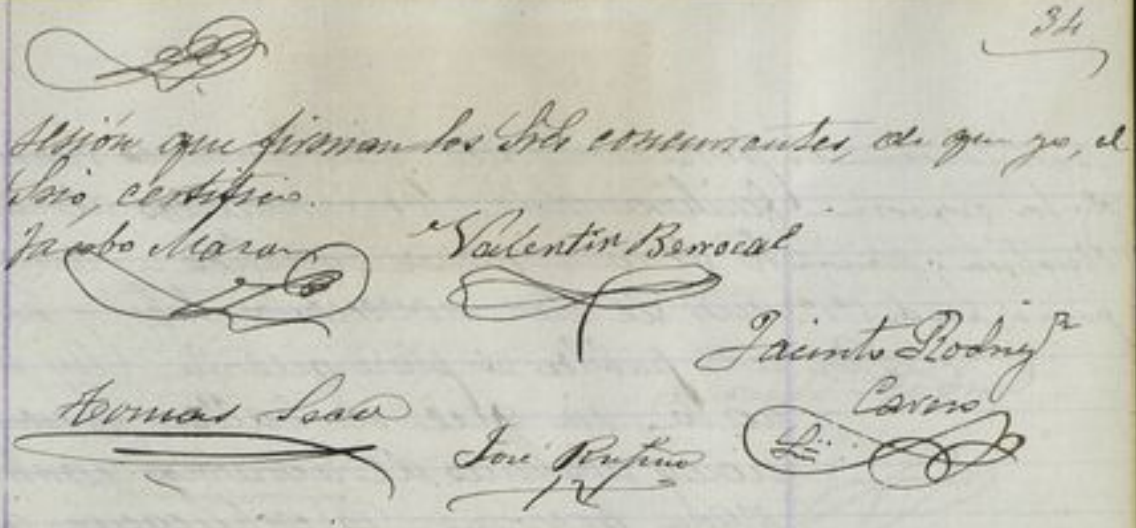 34
sesión que firman los Sres concurrentes, de que yo, el
Srio, certifico.
Jacobo Maran
Valentín Berrocal
Jacinto Rodrigz
Cavero
Tomas Isaac
José Rufino